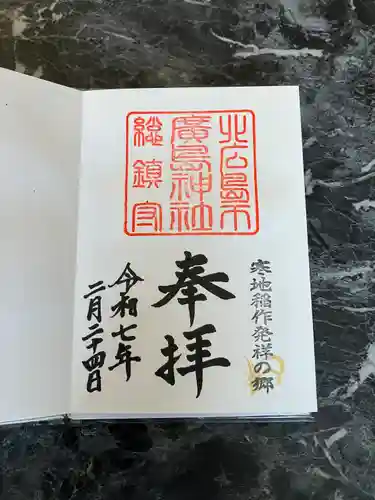 北広島市
廣島神社
総鎮守
寒地稲作発祥の郷
奉拝
令和七年
二月二十四日